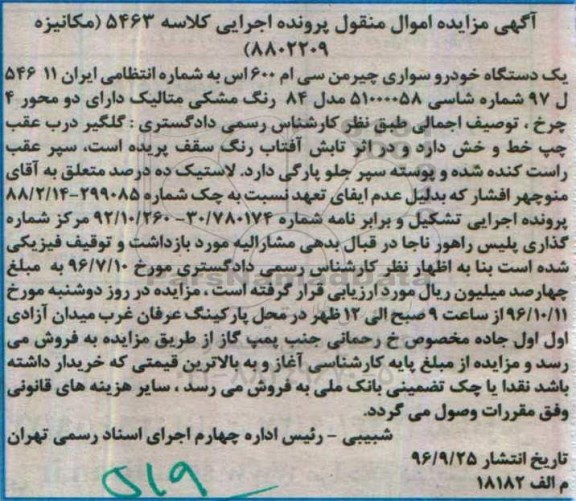 آگهی مزایده اموال منقول پرونده اجرایی کلاسه ۵۴۶۳ (مکانیزه
۸۸۰۲۲۰۹)
یک دستگاه خودرو سواری چیرمن سی ام ۶۰۰ اس به شماره انتظامی ایران ۱۱ ۵۴۶
ل ۹۷ شماره شاسی ۵۱۰۰۰۰۵۸ مدل ۸۴ رنگ مشکی متالیک دارای دو محور ۴
چرخ ، توصیف اجمالی طبق نظر کارشناس رسمی دادگستری : گلگیر درب عقب
چپ خط و خش دارد و در اثر تابش آفتاب رنگ سقف پریده است، سپر عقب
راست کنده شده و پوسته سپر جلو پارگی دارد. لاستیک ده درصد متعلق به آقای
منوچهر افشار که بدلیل عدم ایفای تعهد نسبت به چک شماره ۲۹۹۰۸۵-۸۸/۲/۱۴
پرونده اجرایی تشکیل و برابر نامه شماره ۳۰/۷۸۰۱۷۴-۹۲/۱۰/۲۶۰ مرکز شماره
گذاری پلیس راهور ناجا در قبال بدهی مشارالیه مورد بازداشت و توقیف فیزیکی
شده است بنا به اظهار نظر کارشناس رسمی دادگستری مورخ ۹۶/۷/۱۰ به مبلغ
چهارصد میلیون ریال مورد ارزیابی قرار گرفته است ، مزایده در روز دوشنبه مورخ
۹۶/۱۰/۱۱ از ساعت ۹ صبح الی ۱۲ ظهر در محل پارکینگ عرفان غرب میدان آزادی
اول اول جاده مخصوص خ رحمانی جنب پمپ گاز از طریق مزایده به فروش می
رسد و مزایده از مبلغ پایه کارشناسی آغاز و به بالاترین قیمتی که خریدار داشته
باشد نقدا یا چک تضمینی بانک ملی به فروش می رسد ، سایر هزینه های قانونی
وفق مقررات وصول می گردد.
شبیبی - رئیس اداره چهارم اجرای اسناد رسمی تهران
تاریخ انتشار ۹۶/۹/۲۵
م الف ۱۸۱۸۲
۵۱۹